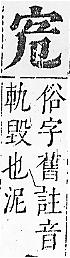 俗字舊註音
軌毀也泥